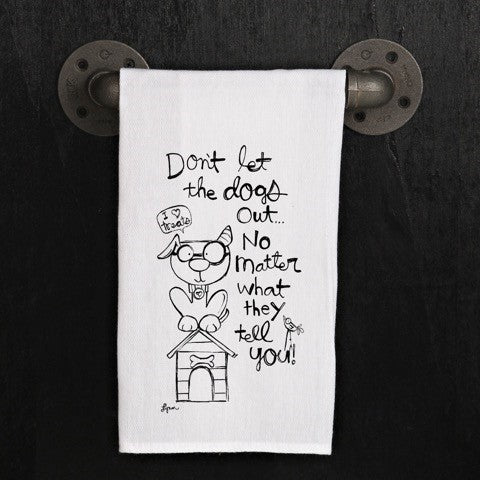 Don't let
the dogs
Out...
No
Matter
what
they
tell
you!!
I ♡
treats